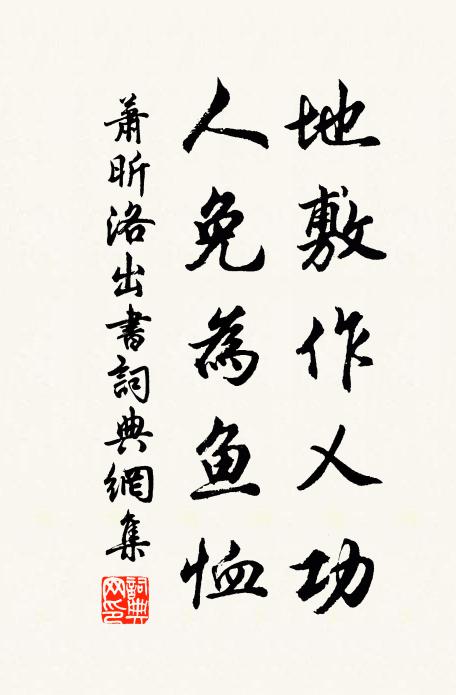 地敷作乂功
人免為鱼恤
蕭昕洛出書詞典網集
詞典网印